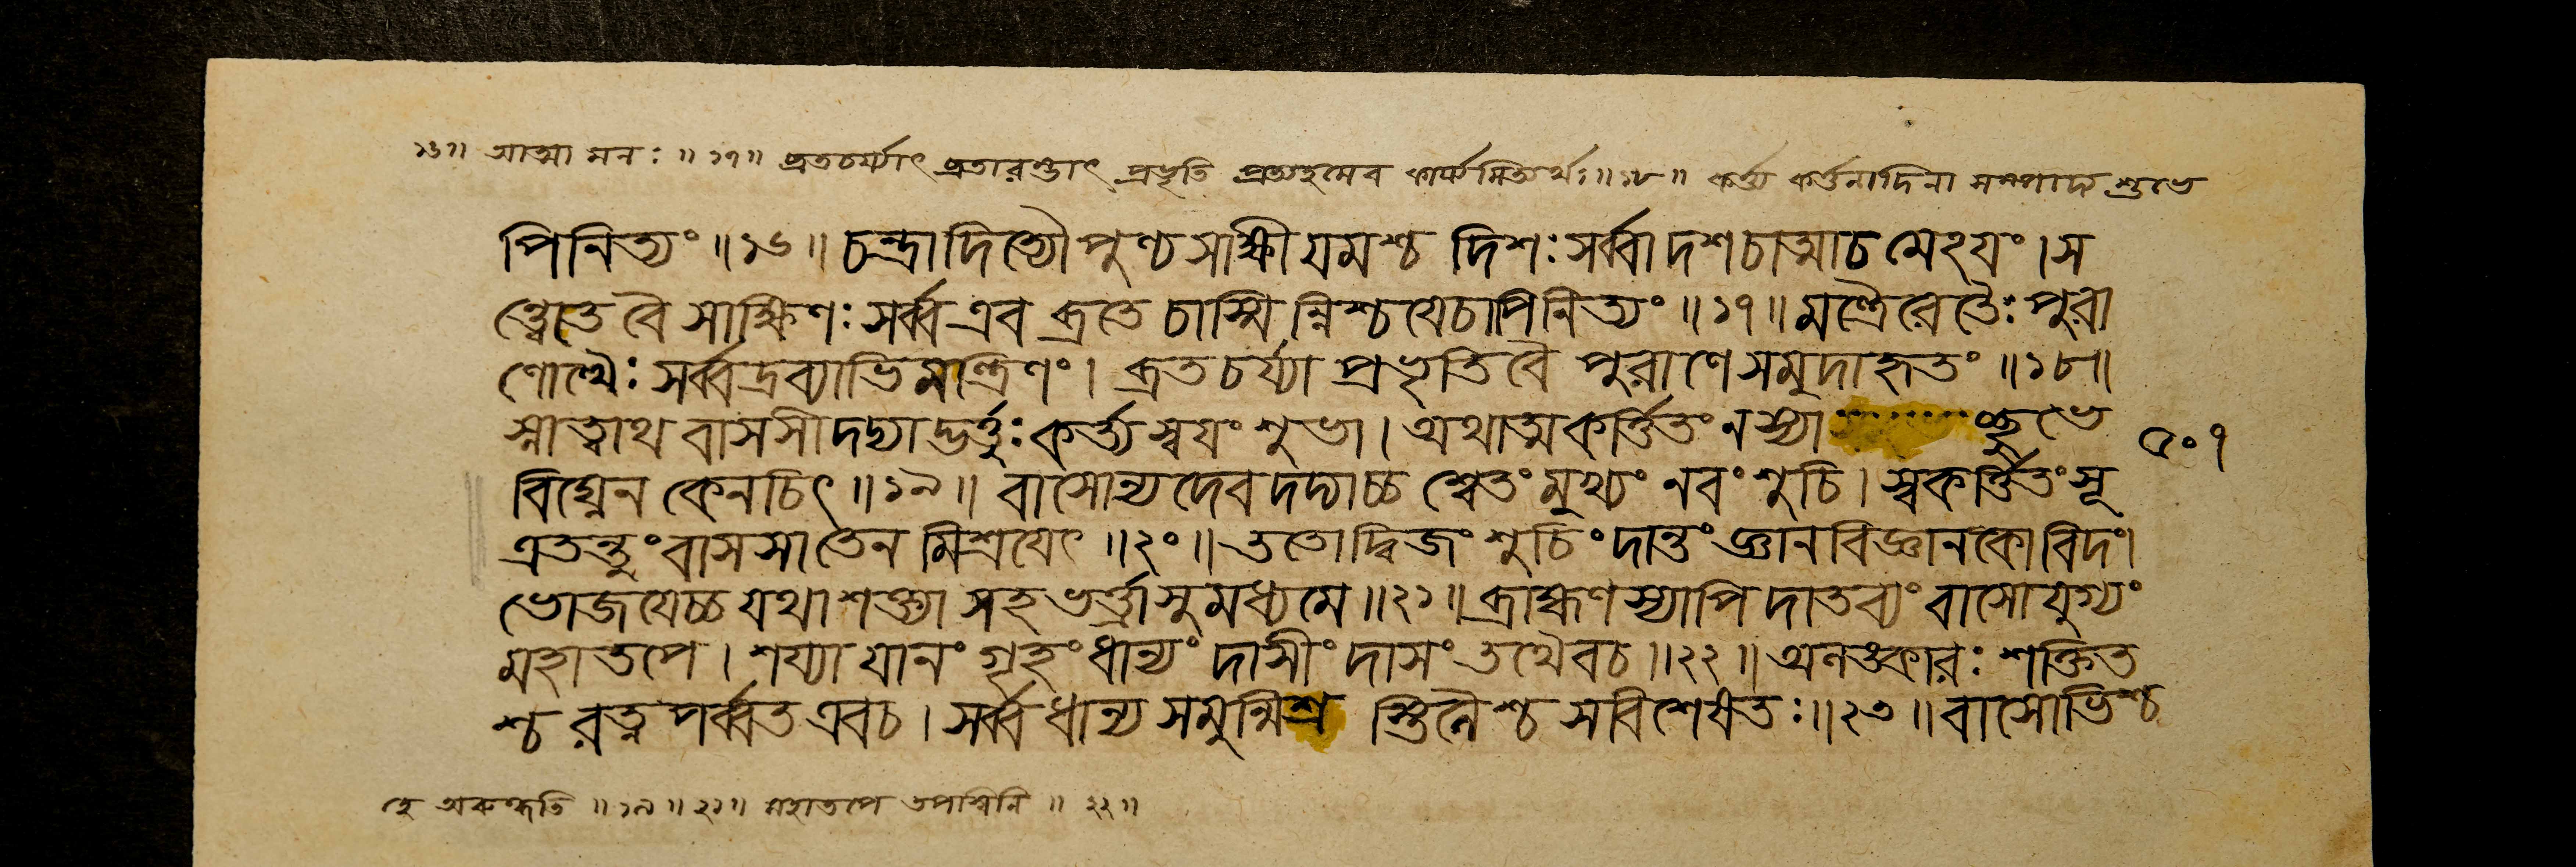 ১৬॥ আত্মা মনঃ ॥ ১৭॥ ব্রতচর্য্যাৎ ব্রতারম্ভাৎ প্রভৃতি প্রত্যহমেব কার্য্যমিত্যর্থঃ॥১৮॥ কর্ত্ত্য কর্ত্তনাদিনা সম্পাদ্য শুভে
পিনিত্যং ॥১৬॥ চন্দ্রাদিত্যৌ পুণ্য সাক্ষী যমশ্চ দিশঃ সর্ব্বা দশ চাত্মা চ মেঽযং । স
ন্ত্বেতে বৈ সাক্ষিণঃ সর্ব্ব এব ব্রতে চাস্মিন্নিশ্চযেচাপিনিত্যং ॥১৭॥ মন্ত্রৈরেতৈঃ পুরা
ণোত্থৈঃ সর্ব্বদ্রব্যাভিমন্ত্রিণং । ব্রতচর্য্যা প্রভৃতি বৈ পুরাণে সমুদাহৃতং ॥১৮॥
স্নাত্বাথ বাসসী দদ্যাদ্ভর্ত্তুঃ কর্ত্ত্য স্বযং শুভা । অথাত্মকর্ত্তিতং ন স্যা ভে
৫০৭
বিঘ্নেন কেনচিৎ ॥১৯॥ বাসোন্যদেব দদ্যাচ্চ শ্বেতং মুখ্যং নবং শুচি । স্বকর্ত্তিতং সূ
এতন্তুং বাসসা তেন মিশ্রযেৎ ॥২০॥ ততো দ্বিজং শুচিং দান্তং জ্ঞানবিজ্ঞানকোবিদং।
ভোজযেচ্চ যথাশক্ত্যা সহ ভর্ত্ত্রা সুমধ্যমে ॥২১॥ ব্রাহ্মণস্যাপি দাতব্যং বাসোযুগ্যং
মহাতপে । শয্যা যানং গৃহং ধান্যং দাসীং দাসং তথৈবচ ॥২২॥ অলঙ্কারঃ শক্তিত
শ্চ রত্ন পর্ব্বত এবচ । সর্ব্ব ধান্য সমুন্মিশ্র স্তিলৈশ্চ সবিশেষতঃ ॥২৩॥ বাসোভিশ্চ
হে অরুন্ধতি ॥১৯॥২১॥ মহাতপে তপস্বিনি ॥ ২২॥